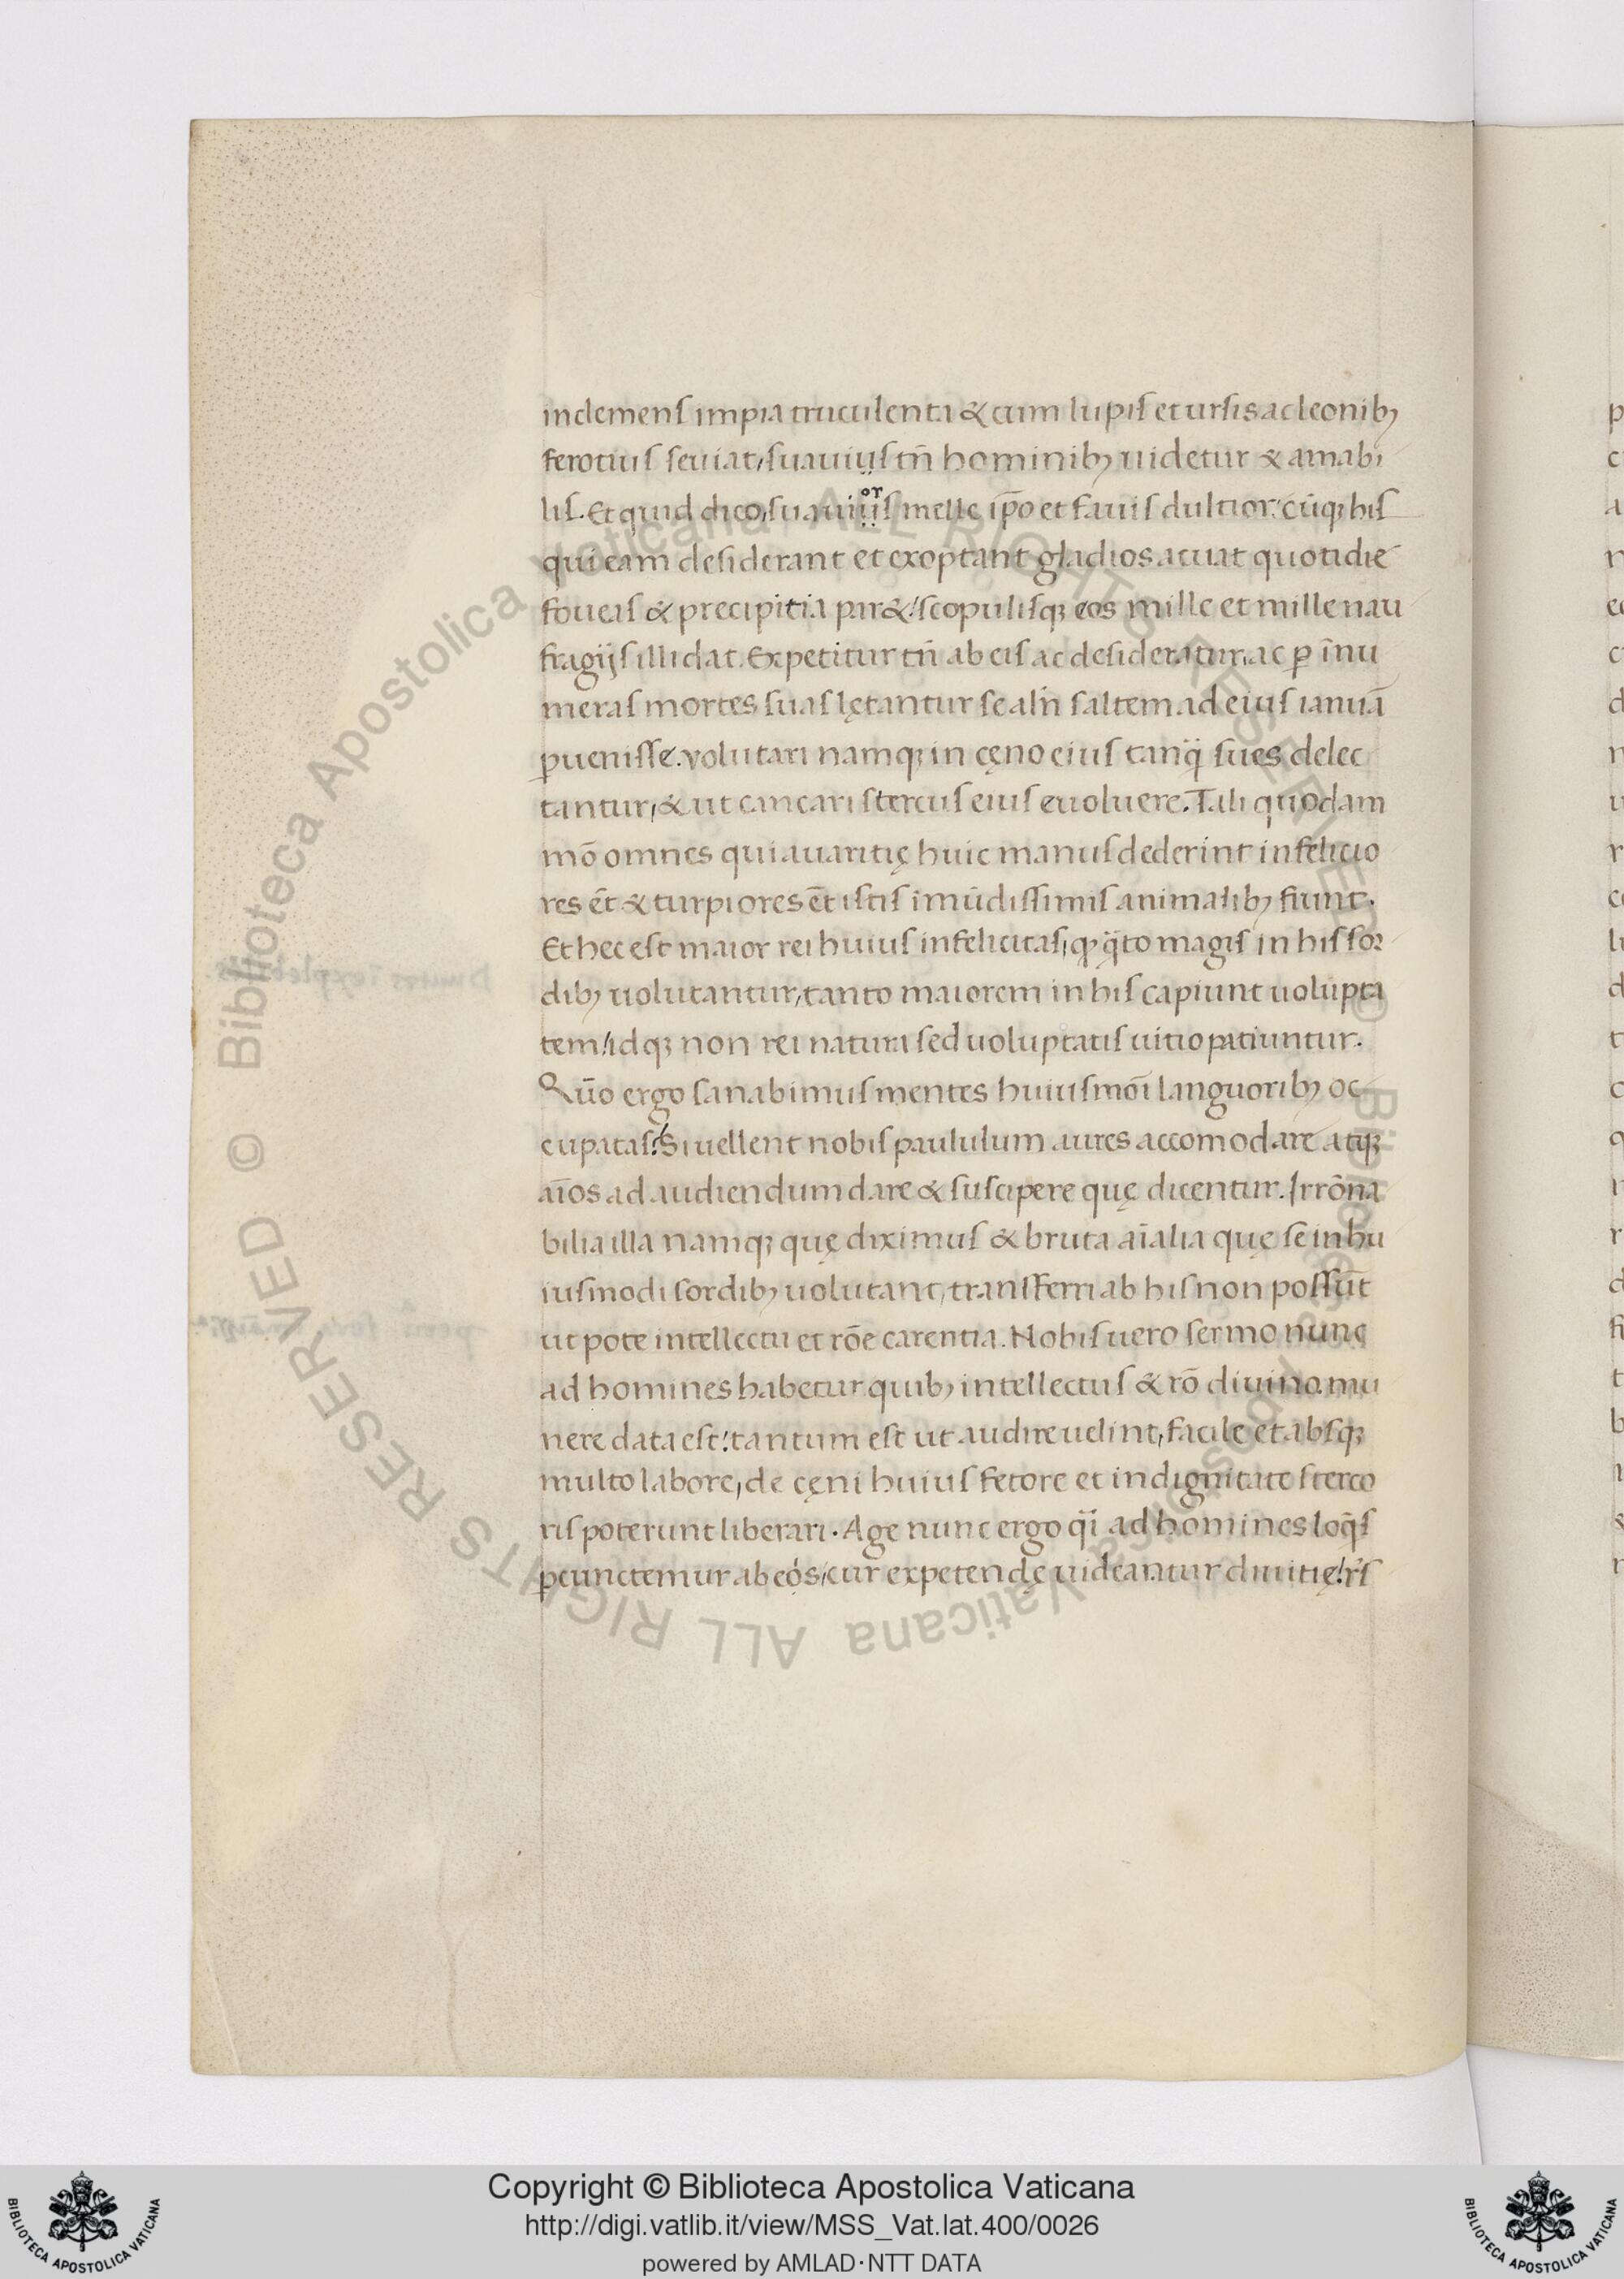 inclemens impia truculenta & cum lupis et ursis ac leonibꝫ
ferotius seuiat, suauius tn̄ hominibꝫ uidetur & amabi
lis. Et quid dico, suauiuſ melle ip̄o et fauis dultior: cūqꝫ his
or
qui eam desiderant et exoptant gladios acuat quotidie
foueas & precipitia par&! scopulisqꝫ eos mille et mille nau
fragijs illidat. Expetitur tn̄ ab eis ac desideratur, ac ꝑ īnu
meras mortes suas lętantur se aln̄ saltem ad eius ianuā
ꝑuenisse. volutari namqꝫ in cęno eius tanq̄ sues delec
tantur, & ut cancari stercus eius euoluere. Tali quodam
mō omnes qui auaritię huic manus dederint infelicio
res ēt & turpiores ēt istis īmūdissimis animalibꝫ fiunt.
Et hec est maior rei huius infelicitas, qꝫ q̄to magis in his sor
dibꝫ uolutantur, tanto maiorem in his capiunt uolupta
tem! idqꝫ non rei natura sed uoluptatis uitio patiuntur.
Quō ergo sanabimus mentes huiusmōi languoribꝫ oc
cupatas? Si uellent nobis paululum aures accomodare atqꝫ
aīos ad audiendum dare & suscipere quę dicentur. Irrōna
bilia illa namqꝫ quę diximus & bruta aīalia quę se in hu
iusmodi sordibꝫ uolutant, transferri ab his non possūt
ut pote intellectu et rōe carentia. Nobis uero sermo nunc
ad homines habetur quibꝫ intellectus & rō diuino mu
nere data est! tantum est ut audire uelint, facile et absqꝫ
multo labore, de cęni huius fetore et indignitate sterco
ris poterunt liberari. Age nunc ergo q̄i ad homines loq̄s
ꝑcunctemur ab eos, cur expetendę uideantur diuitię! r̄s
Copyright © Biblioteca Apostolica Vaticana
http://digi.vatlib.it/view/MSS_Vat.lat.400/0026
powered by AMLAD·NTT DATA